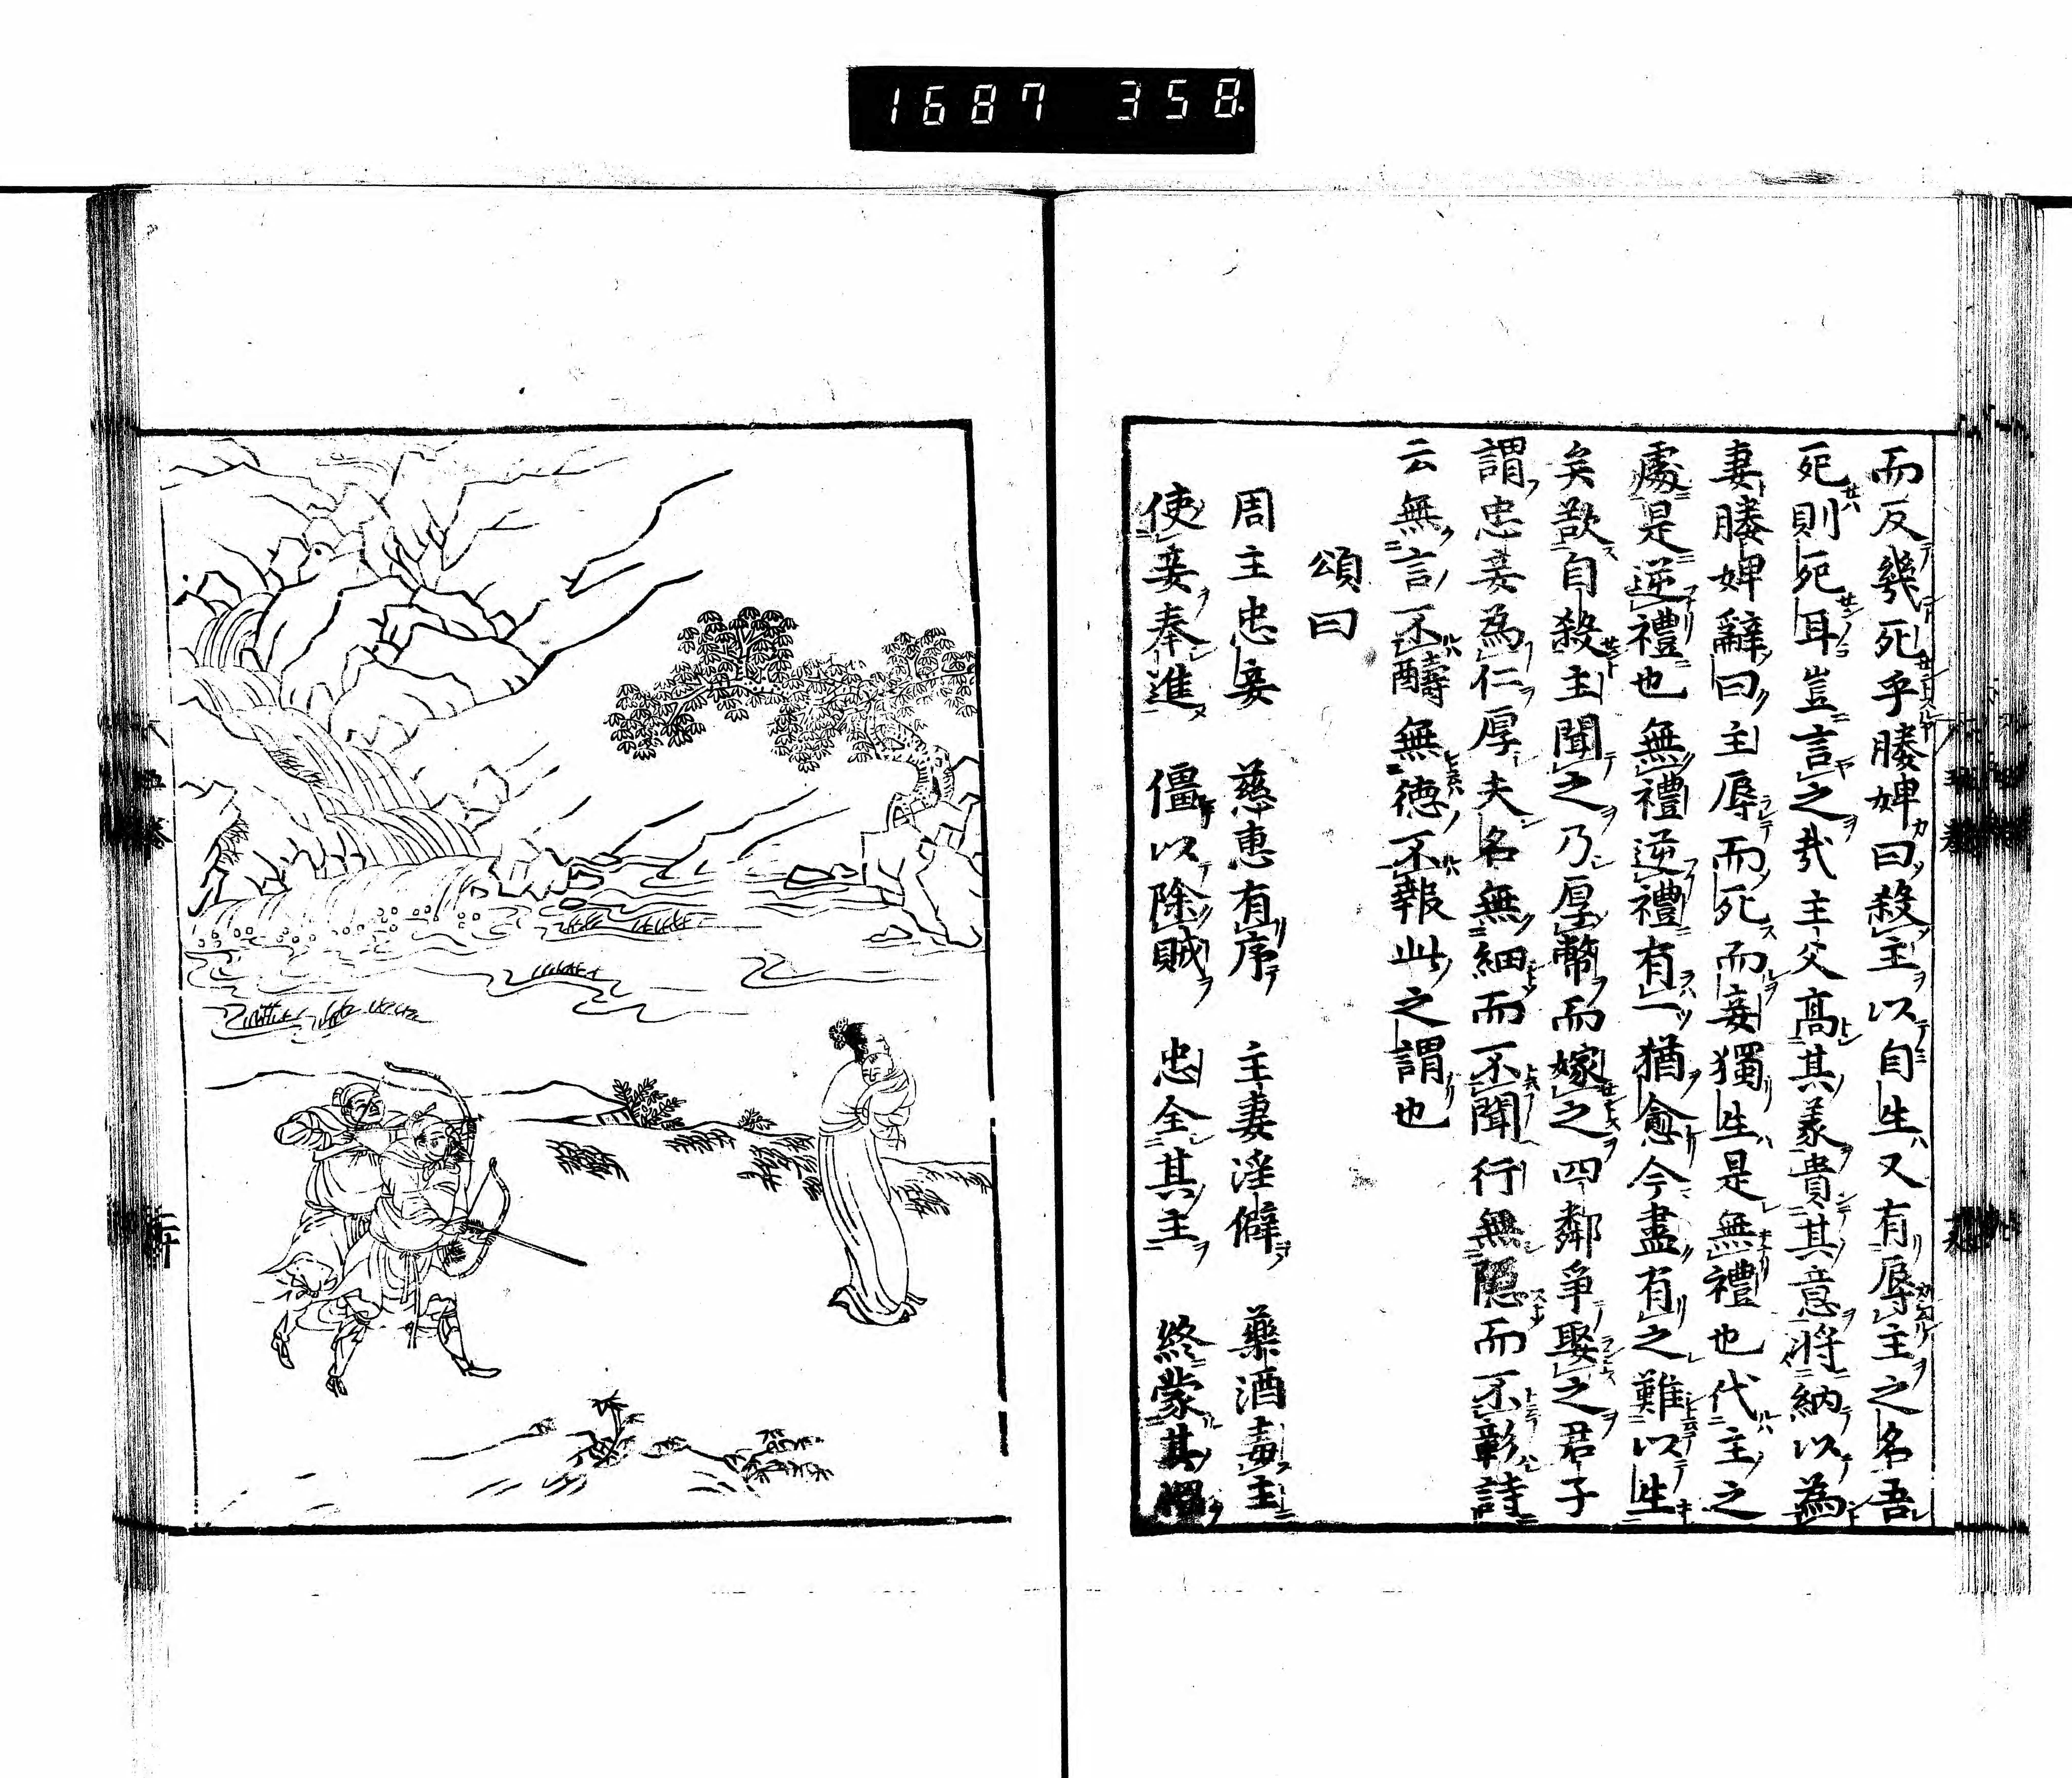 1687 358.
而反幾死乎媵婢曰殺主以自生又有辱主之名吾
死則死耳豈言之哉主父高其義貴其意將納以為
妻媵婢辭曰主辱而死而妾獨生是無禮也代主之
處是逆禮也無禮逆禮有一猶愈今盡有之難以生
矣欲自殺主聞之乃厚幣而嫁之四鄰爭娶之君子
謂忠妾為仁厚夫名無細而不聞行無隱而不彰詩
云無言不醻無德不報此之謂也
頌曰
周主忠妾 慈惠有序 主妻淫僻 藥酒毒主
使妾奉進 僵以除賊 忠全其主 終蒙其